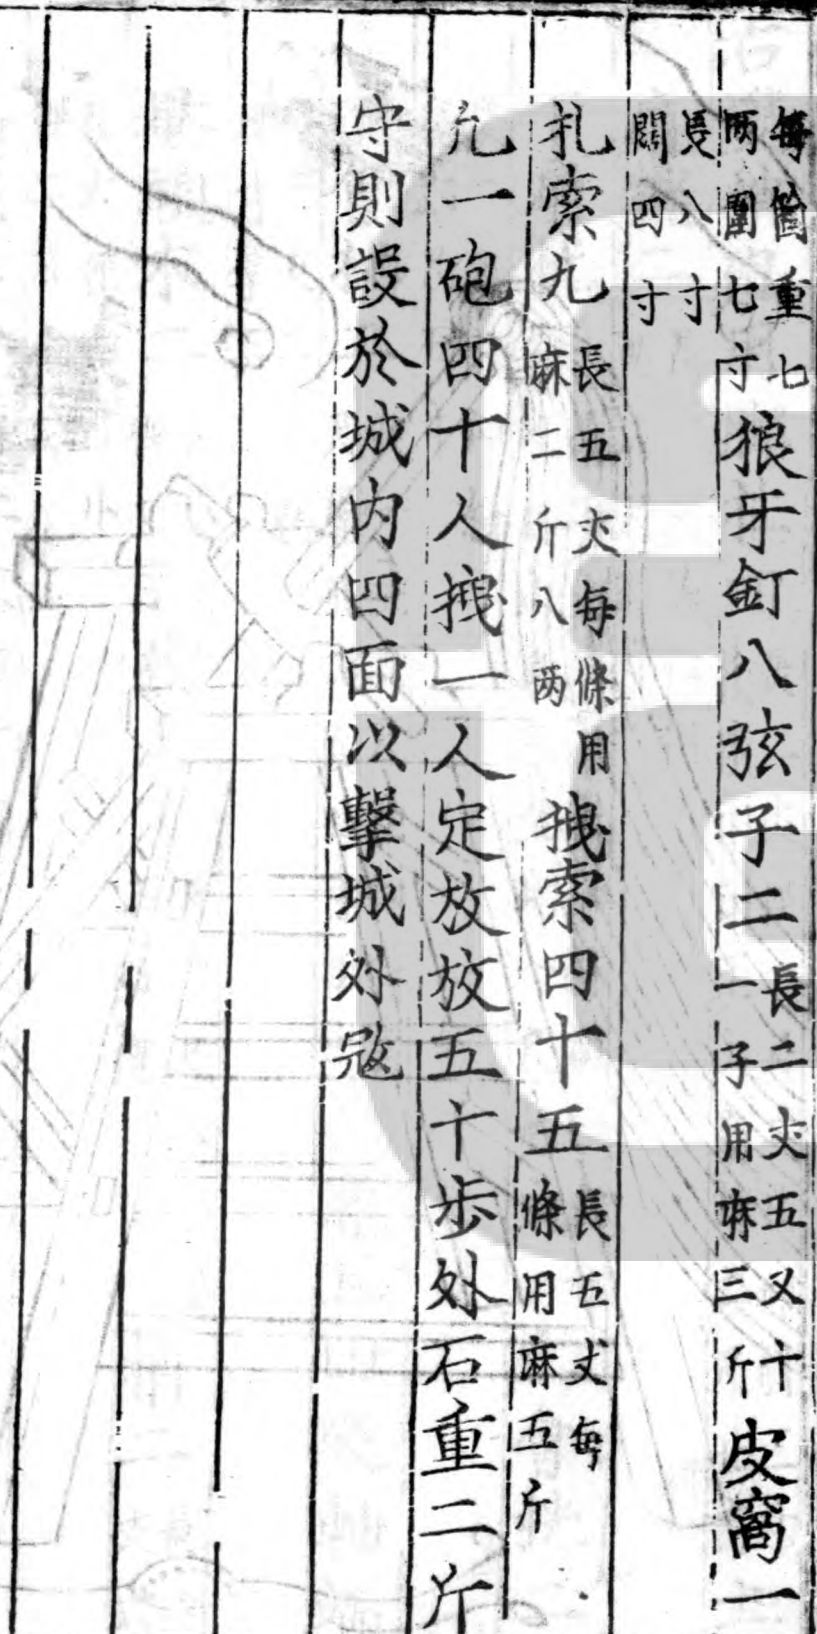 每箇重七两圍七寸狼牙釘八弦子二長二丈五又十一子用麻三斤皮窩一
長八寸闊四寸
扎索九長五丈每條用麻二斤八两拽索四十五長五丈每條用麻五斤
凢一砲四十人拽一人定放放五十歩外石重二斤
守則設於城内四面以擊城外𡨥